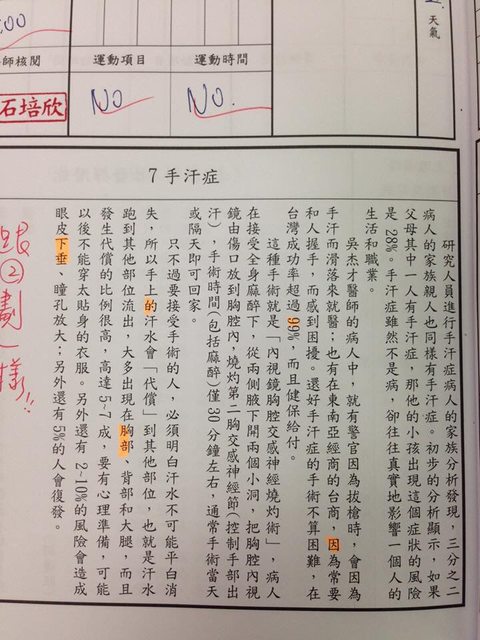 天氣
:00
師核閱
運動項目
運動時間
石培欣
No
No.
7 手汗症
研究人員進行手汗症病人的家族分析發現,三分之二
病人的家族親人也同樣有手汗症。初步的分析顯示,如果
父母其中一人有手汗症,那他的小孩出現這個症狀的風險
是 28%。手汗症雖然不是病,卻往往真實地影響一個人的
生活和職業。
吳杰才醫師的病人中,就有警官因為拔槍時,會因為
手汗而滑落來就醫;也有在東南亞經商的台商,因為常要
和人握手,而感到困擾。還好手汗症的手術不算困難,在
台灣成功率超過 99%,而且健保給付。
這種手術就是「內視鏡胸腔交感神經燒灼術」,病人
在接受全身麻醉下,從兩側腋下開兩個小洞,把胸腔內視
鏡由傷口放到胸腔內,燒灼第二胸交感神經節(控制手部出
汗),手術時間(包括麻醉)僅 30 分鐘左右,通常手術當天
或隔天即可回家。
只不過要接受手術的人,必須明白汗水不可能平白消
失,所以手上的汗水會「代償」到其他部位,也就是汗水
跑到其他部位流出,大多出現在胸部、背部和大腿,而且
發生代償的比例很高,高達 5~7 成,要有心理準備,可能
以後不能穿太貼身的衣服。另外還有 2~10%的風險會造成
眼皮下垂、瞳孔放大;另外還有 5%的人會復發。
跟②劃一樣!!